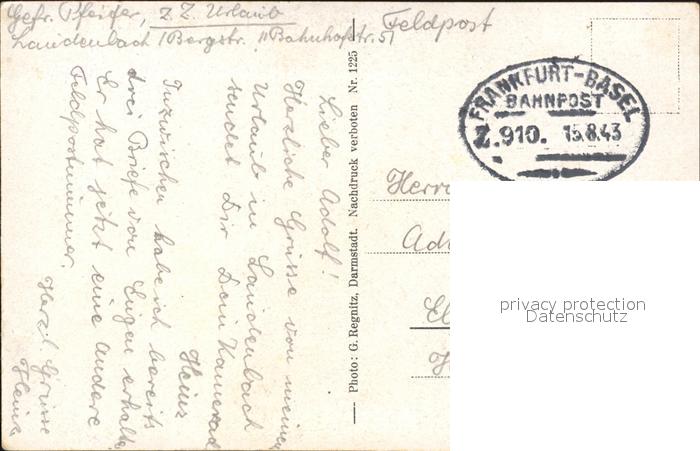 Gefr. Pfeifer, z. Z. Urlaub
Laudenbach / Bergstr. Bahnhofstr. 5
Feldpost
Lieber Adolf!
Herzliche Grüsse von meinem
Urlaub in Laudenbach
sendet Dir Dein Kamerad
Heinz
Inzwischen habe ich bereits
drei Briefe von Eugen erhalten
Er hat jetzt eine andere
Feldpostnummer.
Herzl. Grüsse
Heinz
Photo: G. Regnitz, Darmstadt. Nachdruck verboten Nr. 1225
FRANKFURT-BASEL
BAHNPOST
Z.910. 15.8.43
Herrn
Ad
El
privacy protection
Datenschutz